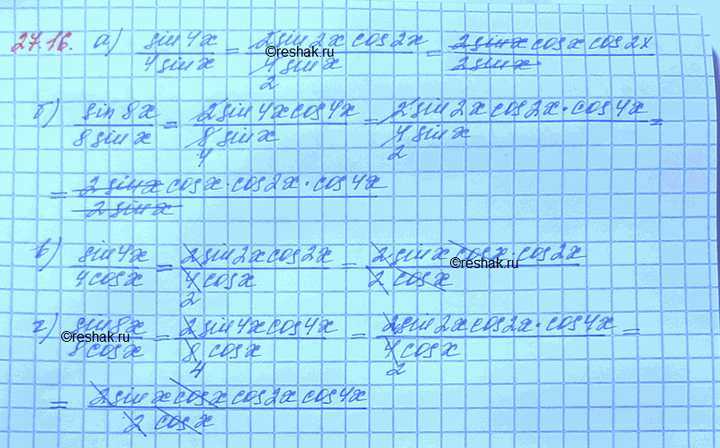 27.16. а) sin4x / 4sinx = 2sin2x cos2x / 4 2 sinx = 2sinx cosx cos2x / 2sinx
©reshak.ru
б) sin8x / 8sinx = 2sin4x cos4x / 8 4 sinx = 2sin2x cos2x·cos4x / 4 2 sinx =
= 2sinx cosx·cos2x·cos4x / 2sinx
в) sin4x / 4cosx = 2sin2x cos2x / 4 2 cosx = 2sinx cosx·cos2x / 2 cosx
©reshak.ru
г) sin8x / 8cosx = 2sin4x cos4x / 8 4 cosx = 2sin2x cos2x·cos4x / 4 2 cosx =
©reshak.ru
= 2sinx cosx cos2x cos4x / 2 cosx